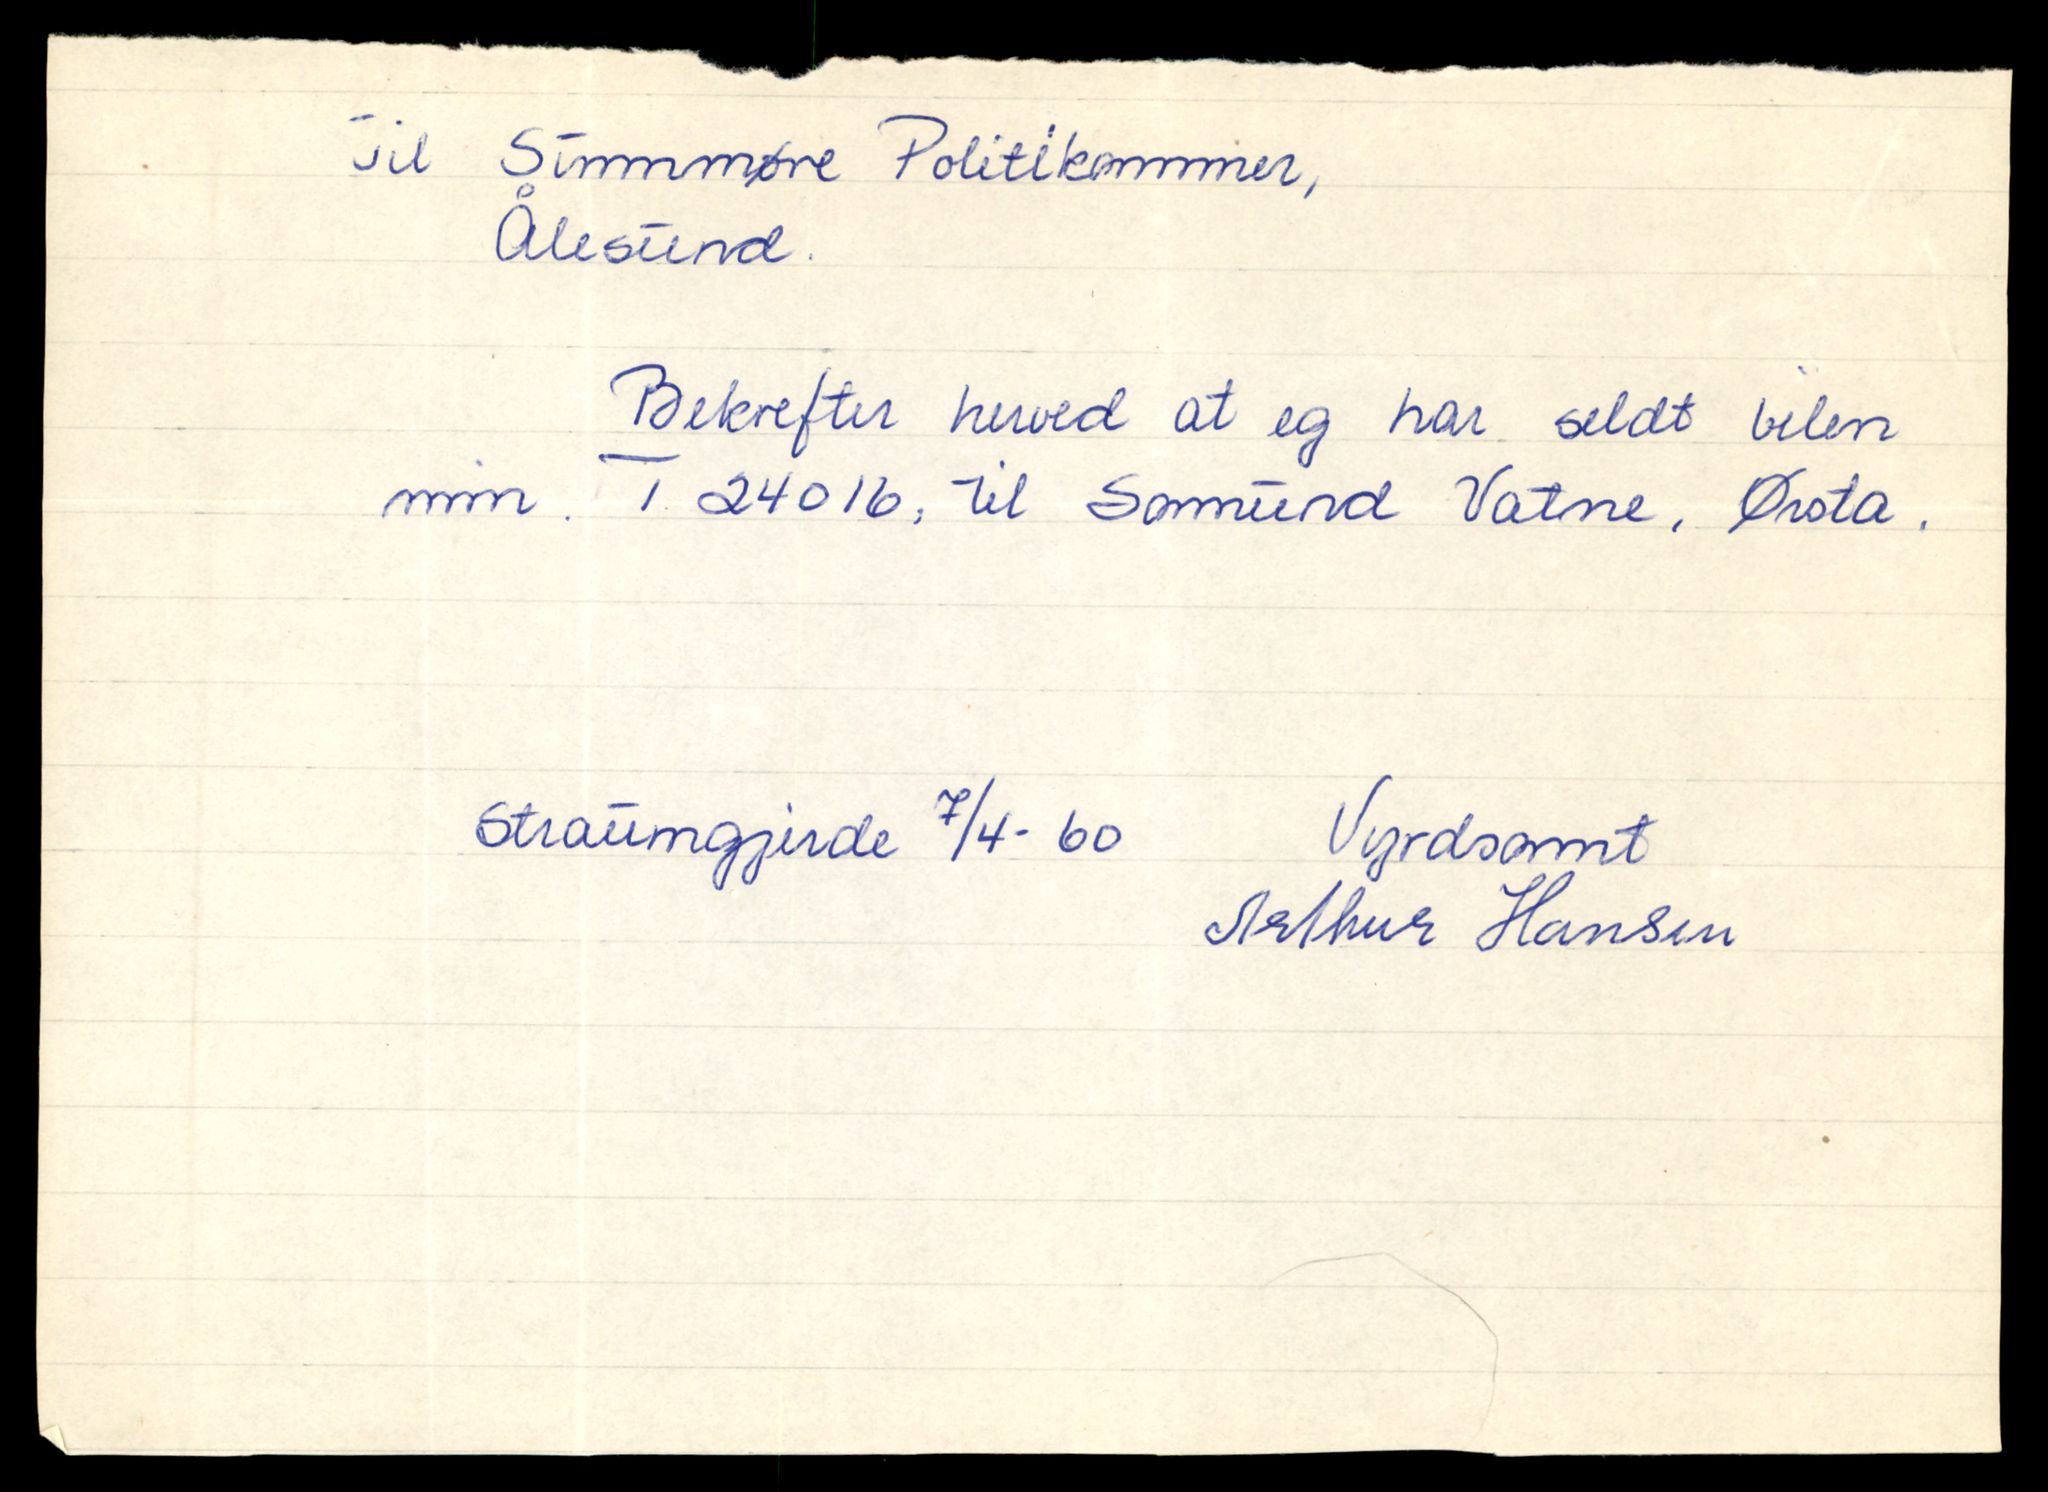 Til Sunnmøre Politikammer,
Ålesund.
Bekrefter herved at eg har seldt bilen
min. T 24016, til Samund Vatne, Ørsta.
Straumgjerde 7/4-60 Vyrdsamt
Arthur Hansen